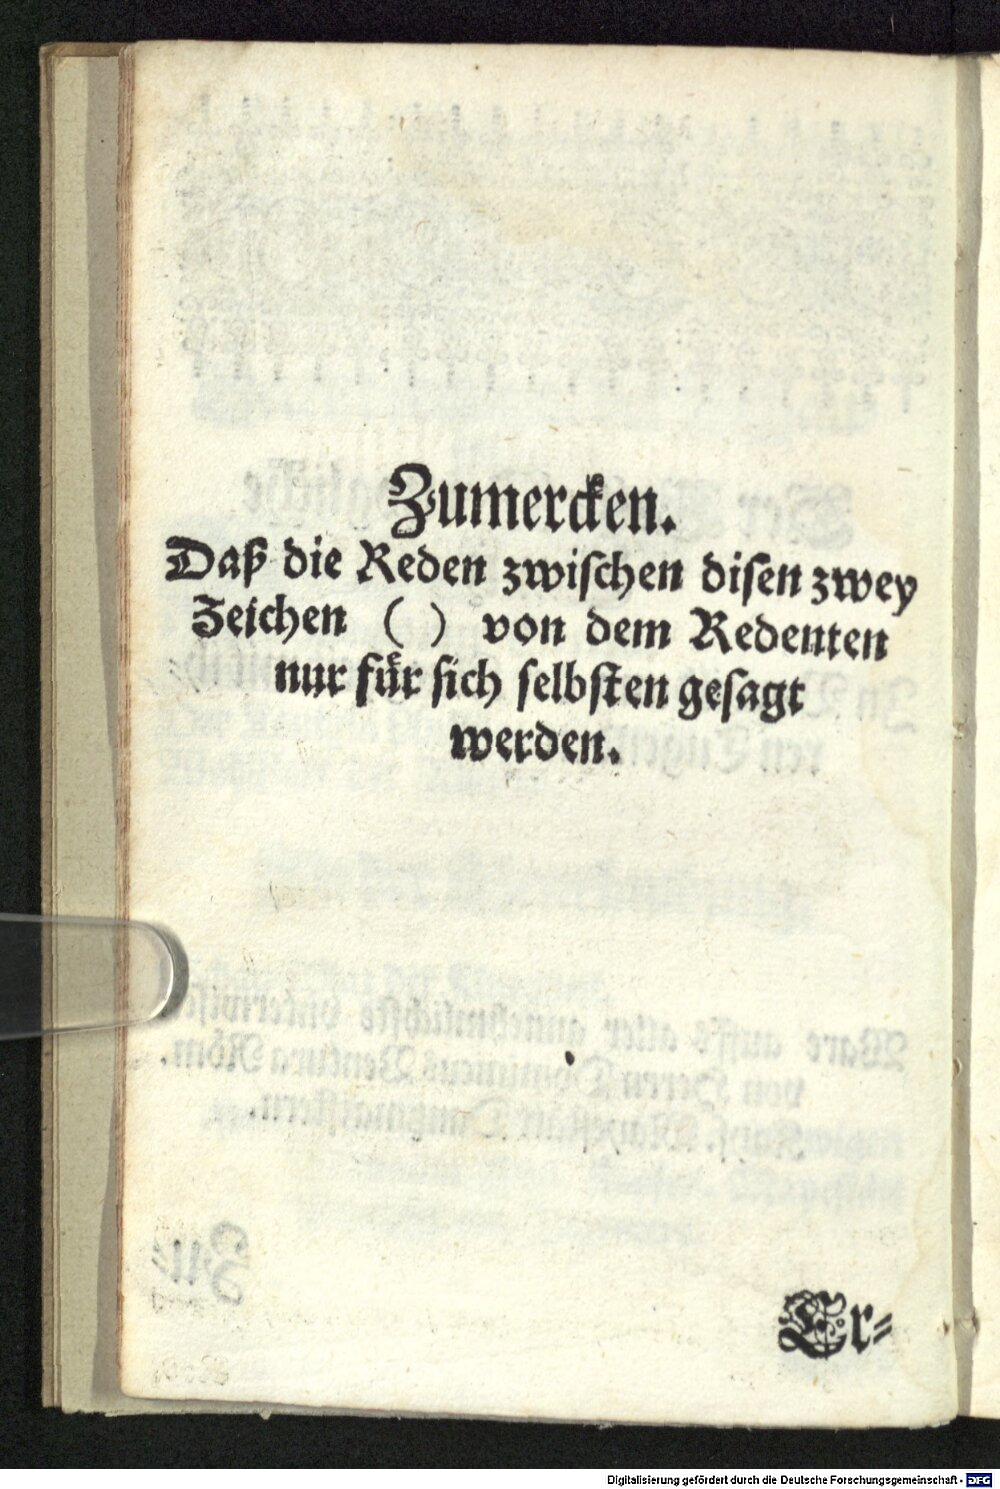 Zumercken.
Daß die Reden zwischen disen zwey
Zeichen ( ) von dem Redenten
nur für sich selbsten gesagt
werden.
Er=
Digitalisierung gefördert durch die Deutsche Forschungsgemeinschaft - DFG